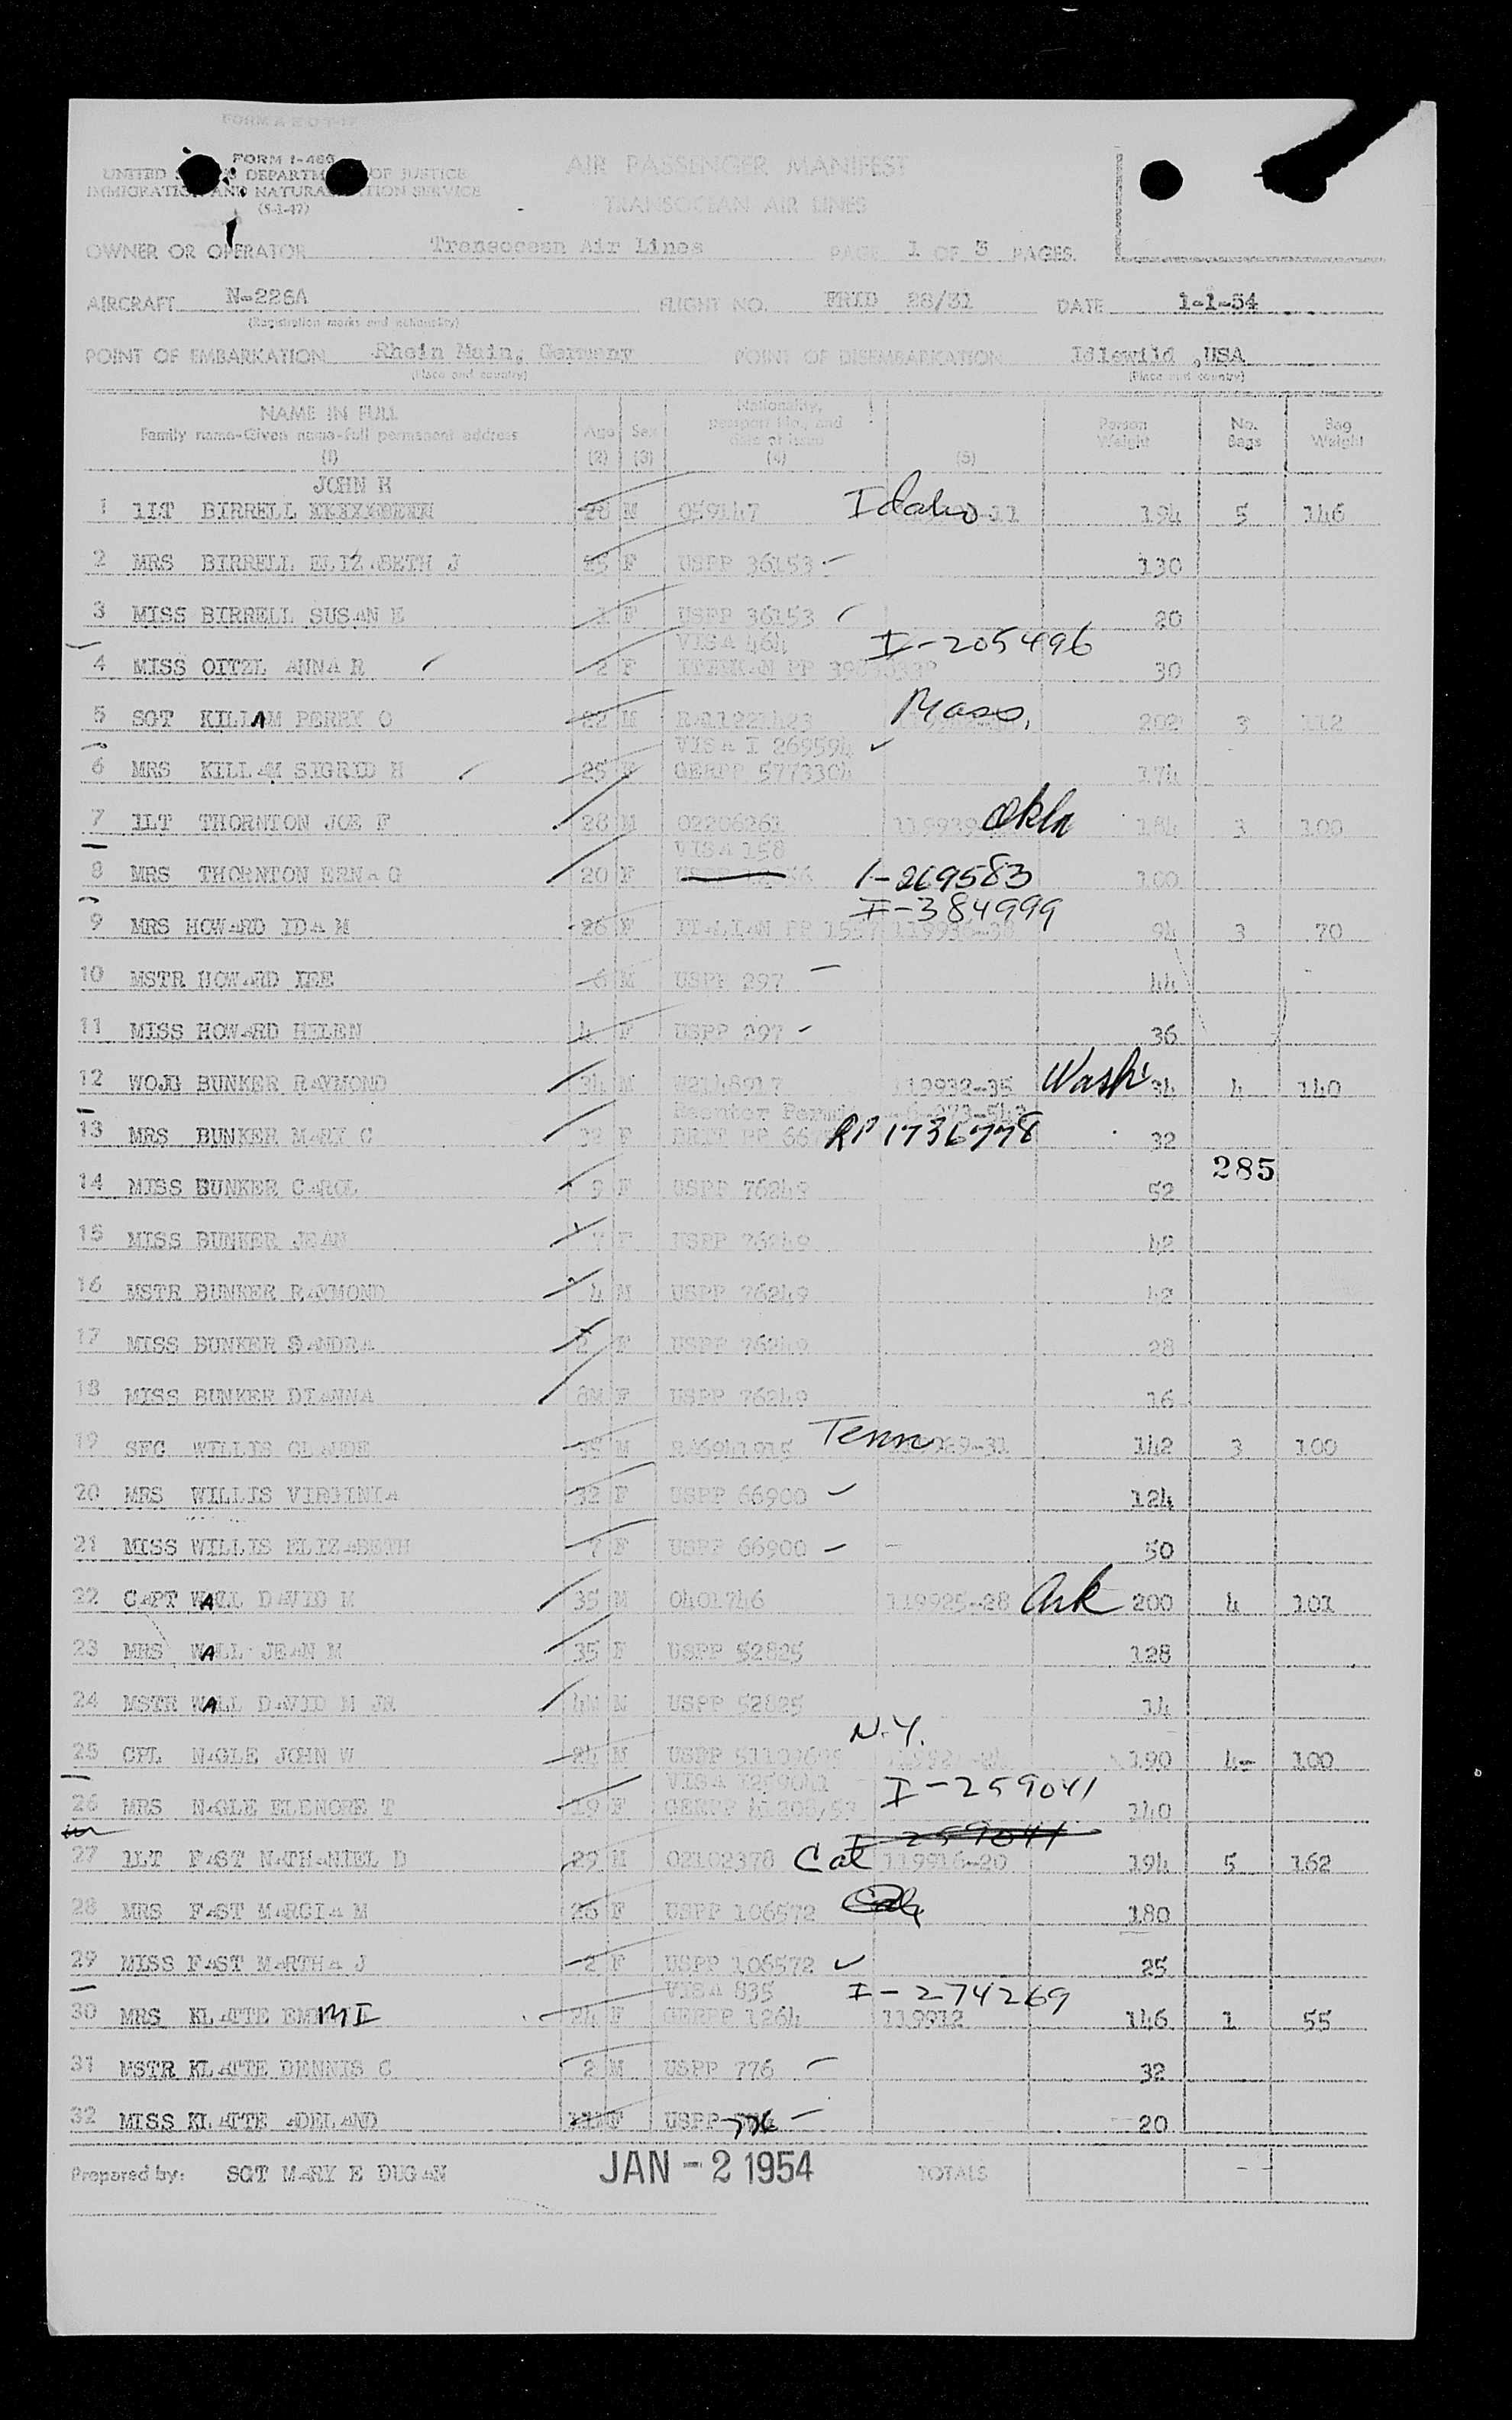 FORM I-466
UNITED DEPARTM OF JUSTICE
IMMIGRATION AND NATURALIZATION SERVICE
(5-1-47)
AIR PASSENGER MANIFEST
TRANSOCEAN AIR LINES
OWNER OR OPERATOR Transocean Air Lines PAGE 1 OF 3 PAGES
AIRCRAFT N-226A FLIGHT NO. FRTD 28/31 DATE 1-1-54
(Registration marks and nationality)
POINT OF EMBARKATION Rhein Main, Germany POINT OF DISEMBARKATION Idlewild ,USA
(Place and country) (Place and country)
NAME IN FULL
Family name-Given name-full permanent address
(1)
Age (2) Sex (3) Nationality, passport No., and date of issue (4) (5) Person Weight No. Bags Bag Weight
JOHN H
1 1LT BIRRELL 28 M 059147 Idaho -11 194 5 146
2 MRS BIRRELL ELIZABETH J 25 F USPP 36153 130
3 MISS BIRRELL SUSAN E 1 F USPP 36153 20
VISA 464 I-205496
4 MISS OITZL ANNA R 2 F 30
5 SGT KILLAM PERRY O 22 M Mass. 202 3 112
VISA I 269594
6 MRS KILLAM SIGRID H 25 F GERPP 577330h 174
7 1LT THORNTON JOE F 28 M 02206261 119939 Okla 184 3 100
VISA 158
8 MRS THORNTON ERNA G 20 F I-269583 100
I-384999
9 MRS HOWARD IDA M 26 F ITALIAN PP 1557 119936-38 94 3 70
10 MSTR HOWARD LEE 6 M USPP 297 44
11 MISS HOWARD HELEN 4 F USPP 297 36
12 WOJG BUNKER RAYMOND 34 M W2148917 119932-35 Wash 34 4 140
13 MRS BUNKER MARY C 32 F BRIT PP RP 1736778 32
285
14 MISS BUNKER CAROL 9 F USPP 76249 52
15 MISS BUNKER JEAN 7 F USPP 76249 42
16 MSTR BUNKER RAYMOND 4 M USPP 76249 42
17 MISS BUNKER SANDRA 2 F USPP 76249 28
18 MISS BUNKER DIANNA 6M F USPP 76249 16
19 SFC WILLIS CLAUDE 35 M RA6941915 Tenn -31 142 3 100
20 MRS WILLIS VIRGINIA 32 F USPP 66900 124
21 MISS WILLIS ELIZABETH 7 F USPP 66900 50
22 CAPT WALL DAVID M 35 M 0401746 119925-28 Ark 200 4 101
23 MRS WALL JEAN M 35 F USPP 52825 128
24 MSTR WALL DAVID M JR 4M M USPP 52825 14
N.Y.
25 CPL NAGLE JOHN W 24 M 190 4 100
VISA I259041 I-259041
26 MRS NAGLE ELENORE T 19 F GERPP 140
259041
27 1LT FAST NATHANIEL D 29 M 02102378 Cal 119916-20 194 5 162
28 MRS FAST MARGIA M 26 F USPP 106572 180
29 MISS FAST MARTHA J 2 F USPP 106572 25
VISA 835 I-274269
30 MRS KLATTE EMMI I 24 F GERPP 1264 119912 146 1 55
31 MSTR KLATTE DENNIS C 2 M USPP 776 32
32 MISS KLATTE ADELAND F USPP 776 20
Prepared by: SGT MARY E DUGAN JAN -2 1954 TOTALS